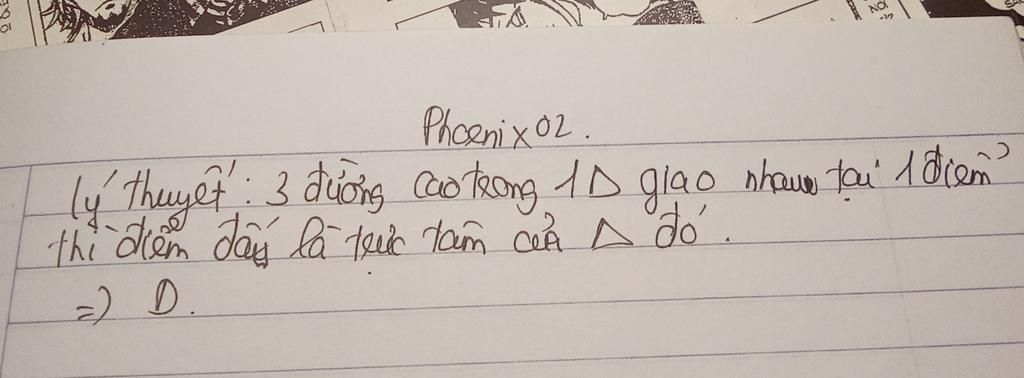 Phoenix02.
lý thuyết: 3 đường cao trong 1 Δ giao nhau tại 1 điểm
thì điểm đấy là trực tâm của Δ đó.
=> D.